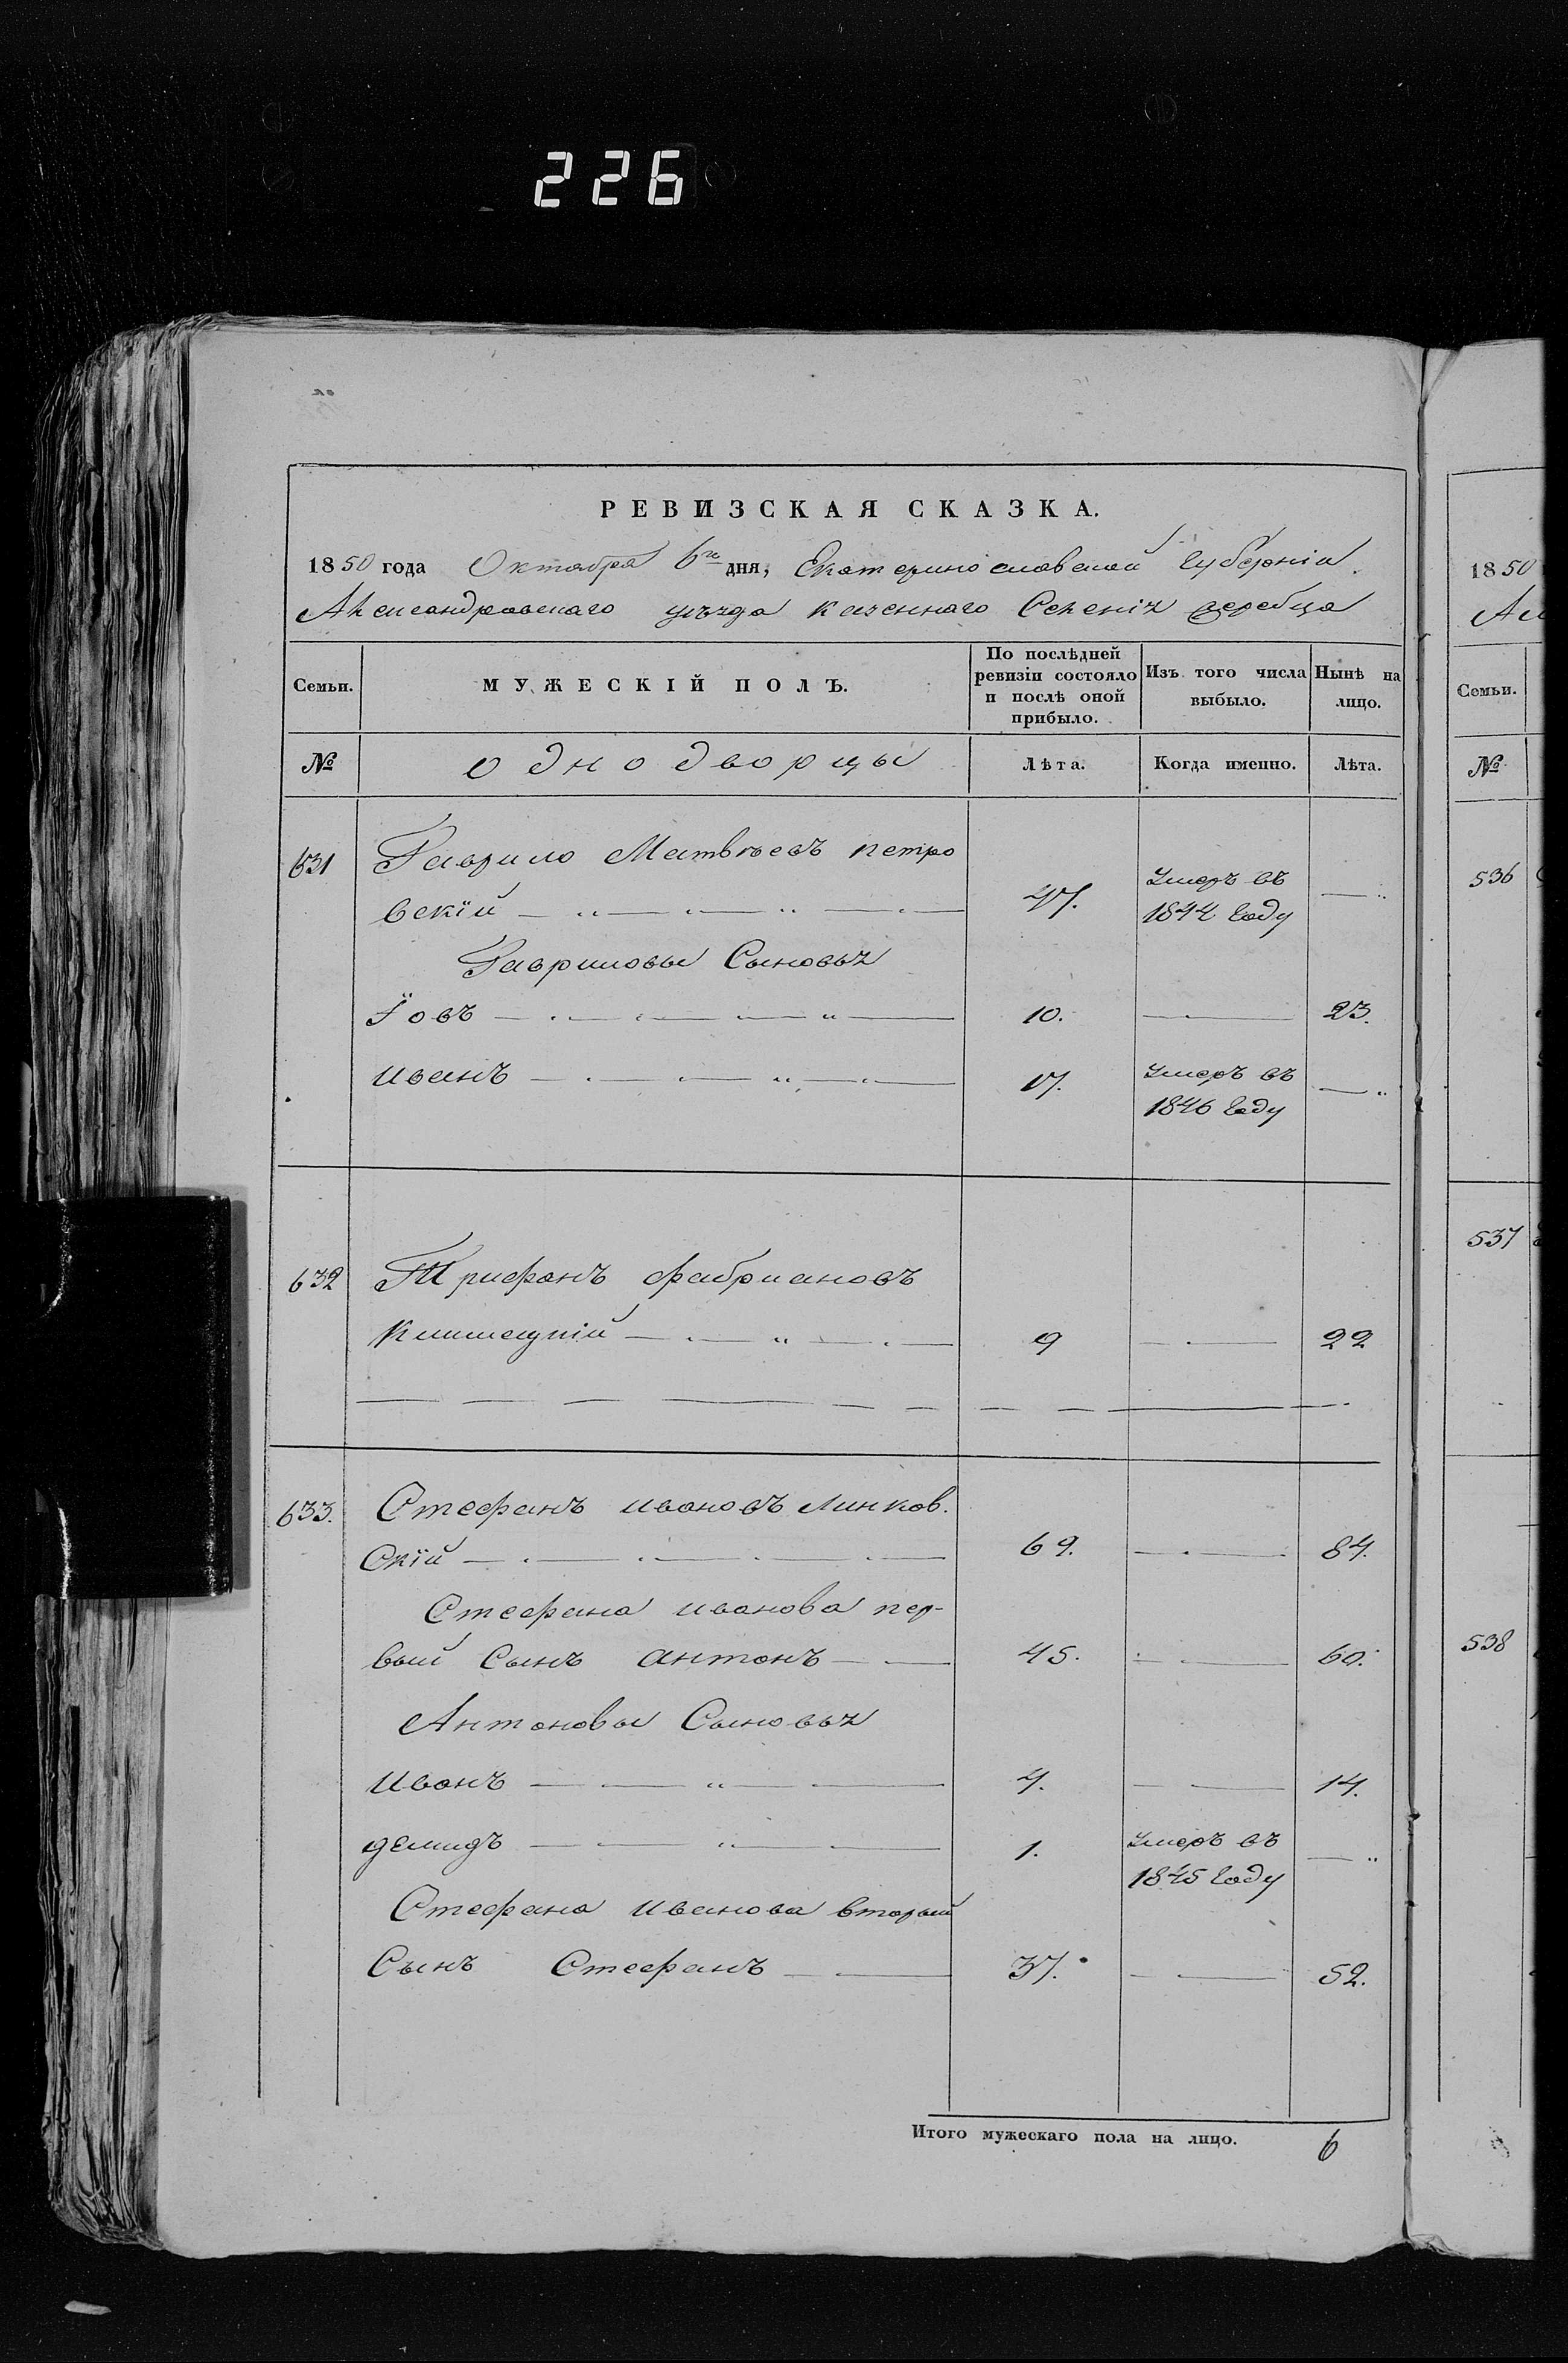 226
РЕВИЗСКАЯ СКАЗКА.
1850 года Октября 6го дня, Екатеринославской Губерніи
Александровскаго уѣзда казеннаго Селенія жеребца
Семьи.
МУЖЕСКІЙ ПОЛЪ.
По послѣдней ревизіи состояло и послѣ оной прибыло.
Изъ того числа выбыло.
Нынѣ на лицо.
№
однодворцы
Лѣта.
Когда именно.
Лѣта.
631 Гаврило Матвѣевъ петро
вскій 47. Умеръ въ 1844 Году
Гавриловы Сыновья
Іовъ 10. 23.
иванъ 17. Умеръ въ 1846 Году
632 Трифонъ фабриановъ
9 22
633. Стефанъ ивановъ Линков.
Скій 69. 84.
Стефана иванова пер-
вый Сынъ антонъ 45. 60.
Антоновы Сыновья
иванъ 4. 14.
демидъ 1. Умеръ въ 1845 Году
Стефана иванова вторый
Сынъ Стефанъ 37. 52.
Итого мужескаго пола на лицо. 6
1850
Ал
Семьи.
№
536
537
538